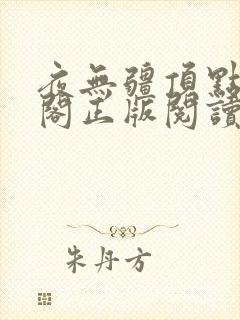 夜無疆頂點
閣正版閱讀
朱丹方